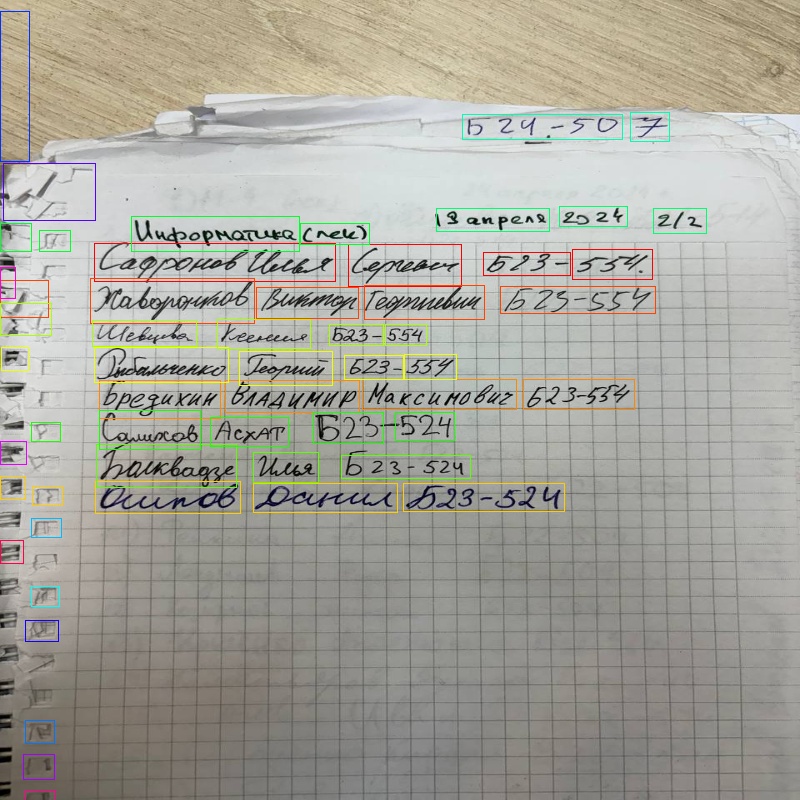 Б24-507
Информатика (лек) 13 апреля 2024 2/2
Сафронов Илья Сергеевич Б23-554.
Жаворонков Виктор Георгиевич Б23-554
Шевцова Ксения Б23-554
Рыбальченко Георгий Б23-554
Бредихин Владимир Максимович Б23-554
Салихов Асхат Б23-524
Болквадзе Илья Б23-524
Осипов Данил Б23-524